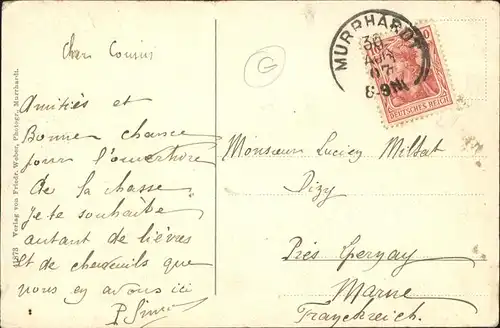 Cher Cousin
Amitiés et
Bonne chance
pour l'ouverture
de la chasse
Je te souhaite
autant de lièvres
et de chevreuils que
nous en avons ici
P. Simon
Monsieur Lucien
Dizy
Près Epernay
Marne
Franckreich.
MURRHARDT
30
AUG
07
8-9 N.
10
DEUTSCHES REICH
G
41673 Verlag von Friedr. Weber, Photogr., Murrhardt.